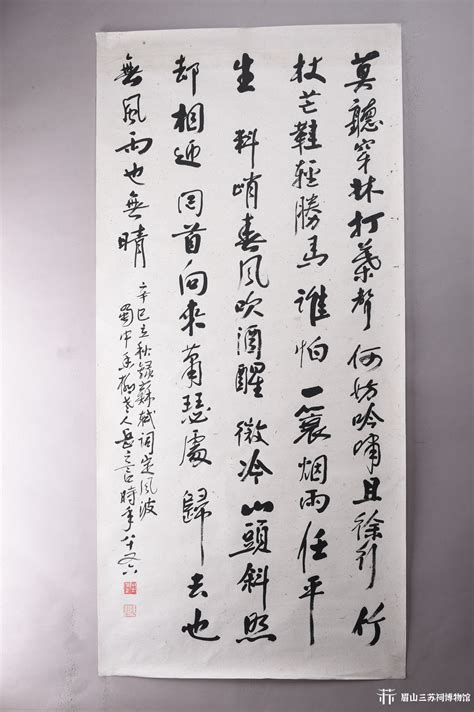 莫聽穿林打葉聲 何妨吟嘯且徐行 竹
杖芒鞋輕勝馬 谁怕 一蓑烟雨任平
生 料峭春風吹酒醒 微冷 山頭斜照
却相迎 回首向來蕭瑟處 歸去也
無風雨也無晴
辛巳立秋録蘇軾詞定風波
蜀中老人時年八十又六
眉山三苏祠博物馆